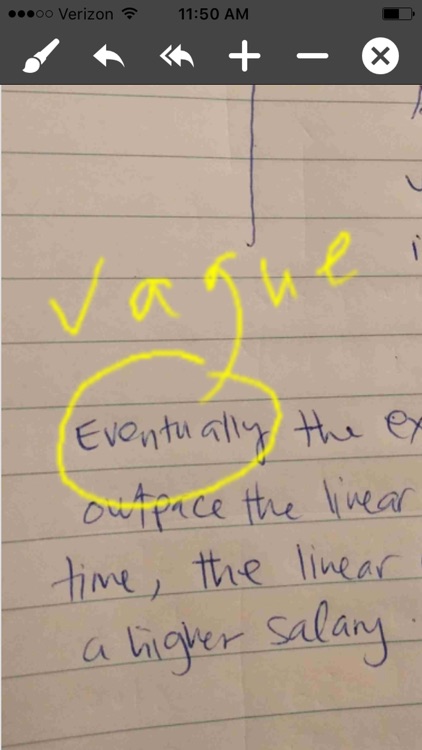 Verizon 11:50 AM
vague
Eventually the ex
outpace the linear
time, the linear
a higher salary.